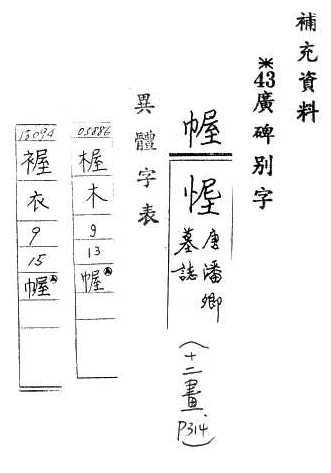 補充資料
*43廣碑別字
幄
唐潘卿
墓誌
(十二畫. P314)
異體字表
05886
楃
木
9
13
幄
13094
衣
9
15
幄